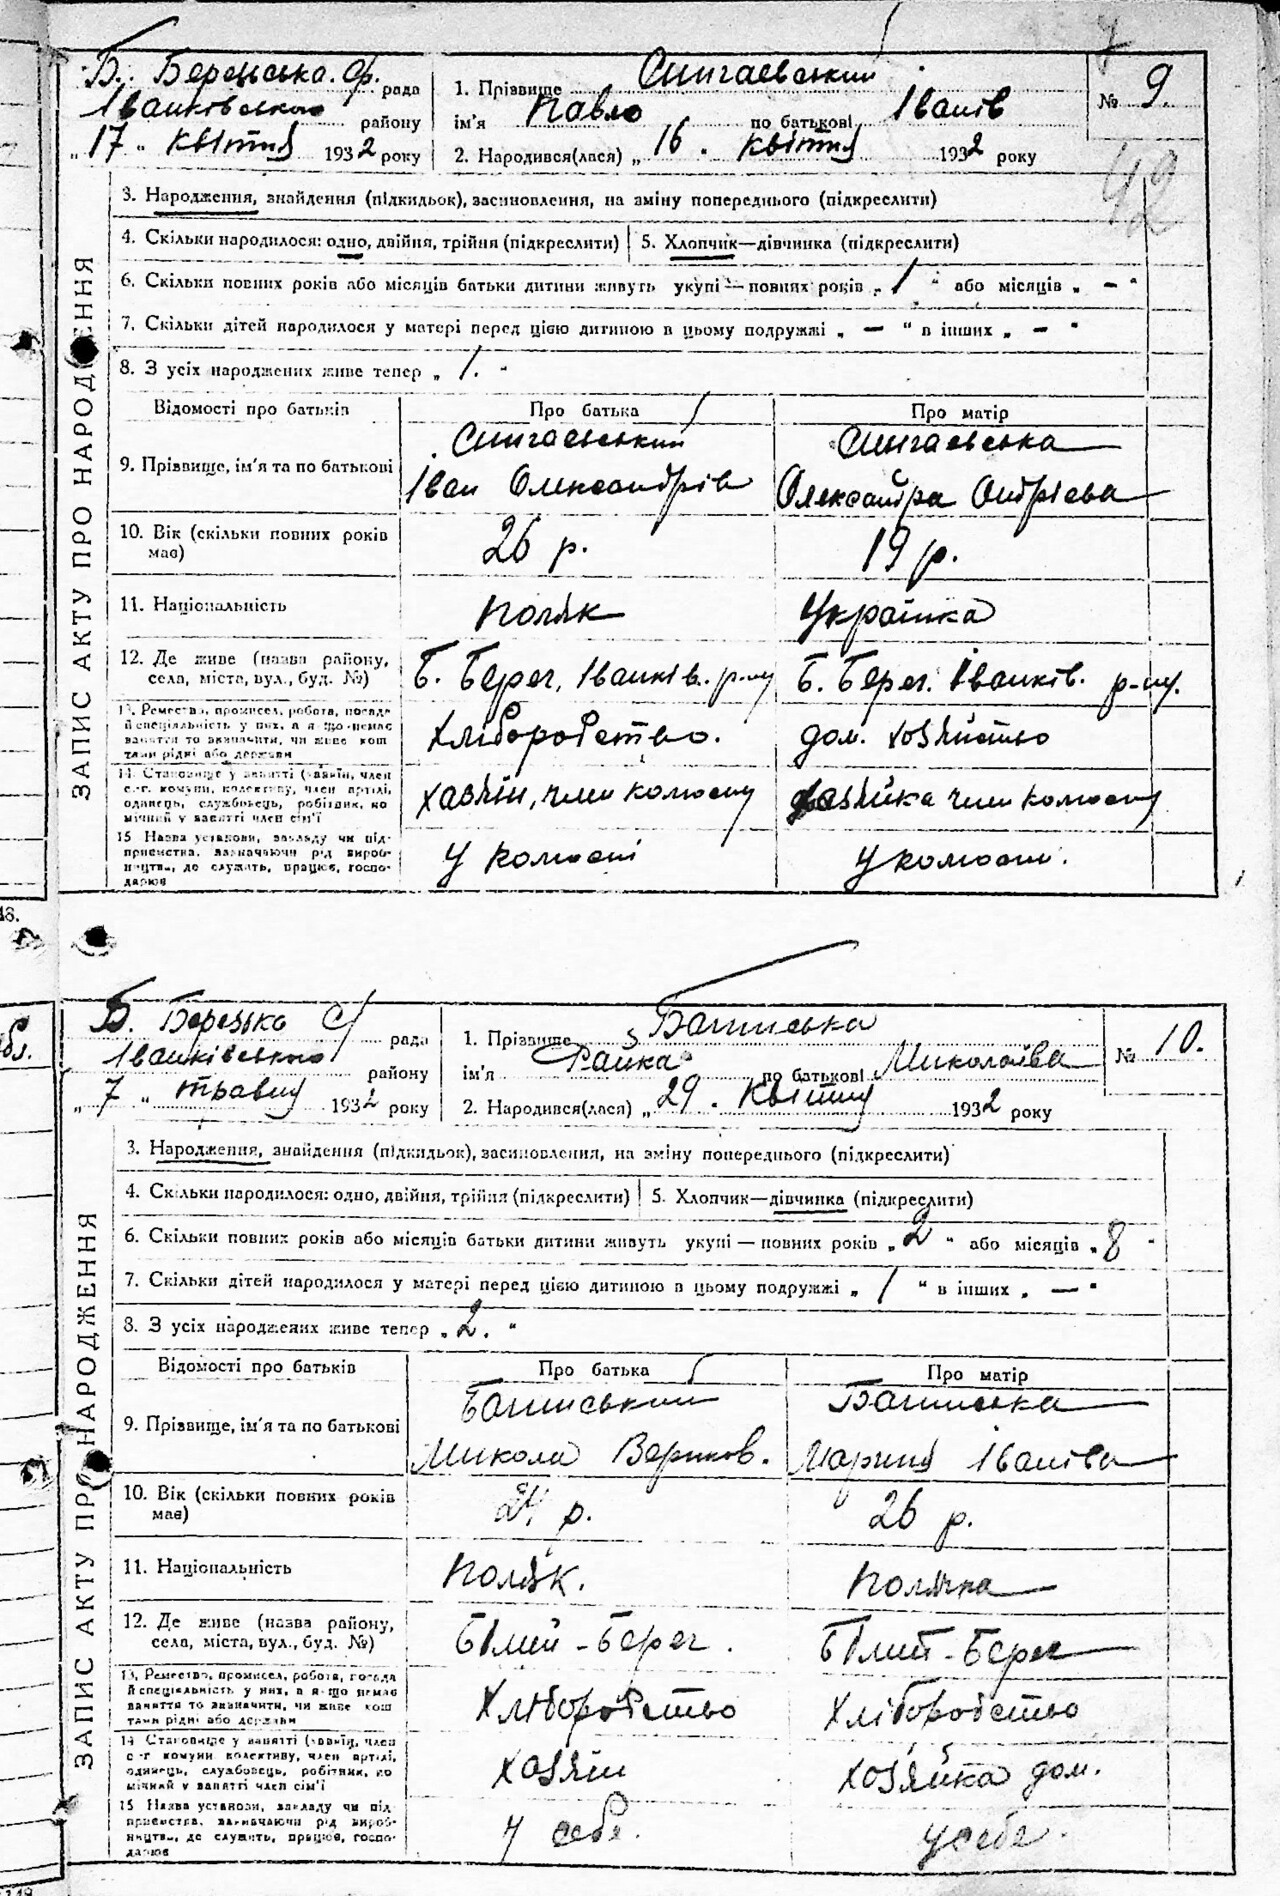 7
Б. Березька. с/р. рада
Іванківського району
„ 17 " квітня 1932 року
1. Прізвище Сингаєвський
ім'я Павло по батькові Іванів
2. Народився(лася) „ 16. квітня 1932 року
№ 9.
42
ЗАПИС АКТУ ПРО НАРОДЖЕННЯ
3. Народження, знайдення (підкидьок), засиновлення, на зміну попереднього (підкреслити)
4. Скільки народилося: одно, двійня, трійня (підкреслити) 5. Хлопчик—дівчинка (підкреслити)
6. Скільки повних років або місяців батьки дитини живуть укупі — повних років „ 1 " або місяців „ — "
7. Скільки дітей народилося у матері перед цією дитиною в цьому подружжі „ — " в інших „ — "
8. З усіх народжених живе тепер „ 1. "
Відомості про батьків Про батька Про матір
9. Прізвище, ім'я та по батькові
Сингаєвський
Іван Олександрів
Сингаєвська
Олександра Андрієва
10. Вік (скільки повних років має) 26 р. 19 р.
11. Національність поляк Українка
12. Де живе (назва району, села, міста, вул., буд. №)
Б. Берег, Іванків. р-ну Б. Берег. Іванків. р-ну.
13. Ремество, промисел, робота, посада й спеціяльність у них, а якщо немає заняття то зазначити, чи живе коштами рідні або держави
Хліборобство. дом. хозяйство
14. Становище у занятті (хазяїн, член с.-г. комуни, колективу, член артілі, одинець, службовець, робітник, помічний у занятті член сім'ї
хазяїн, член колгоспу хазяйка член колгоспу
15. Назва установи, закладу чи підприємства, зазначаючи рід виробництва, де служить, працює, господарює
у колгоспі у колгоспі.
Б. Березька С/ рада
Іванківського району
„ 7 " травня 1932 року
1. Прізвище
ім'я по батькові Миколаїва
2. Народився(лася) „ 29. квітня 1932 року
№ 10.
ЗАПИС АКТУ ПРО НАРОДЖЕННЯ
3. Народження, знайдення (підкидьок), засиновлення, на зміну попереднього (підкреслити)
4. Скільки народилося: одно, двійня, трійня (підкреслити) 5. Хлопчик—дівчинка (підкреслити)
6. Скільки повних років або місяців батьки дитини живуть укупі — повних років „ 2 " або місяців „ 8 "
7. Скільки дітей народилося у матері перед цією дитиною в цьому подружжі „ 1 " в інших „ — "
8. З усіх народжених живе тепер „ 2. "
Відомості про батьків Про батька Про матір
9. Прізвище, ім'я та по батькові
Микола
Марина Іванівна
10. Вік (скільки повних років має) 24 р. 26 р.
11. Національність поляк. полячка
12. Де живе (назва району, села, міста, вул., буд. №)
Білий-Берег. Білий-Берег
13. Ремество, промисел, робота, посада й спеціяльність у них, а якщо немає заняття то зазначити, чи живе коштами рідні або держави
Хліборобство Хліборобство
14. Становище у занятті (хазяїн, член с.-г. комуни, колективу, член артілі, одинець, службовець, робітник, помічний у занятті член сім'ї
хозяїн хозяйка дом.
15. Назва установи, закладу чи підприємства, зазначаючи рід виробництва, де служить, працює, господарює
у себе. у себе.